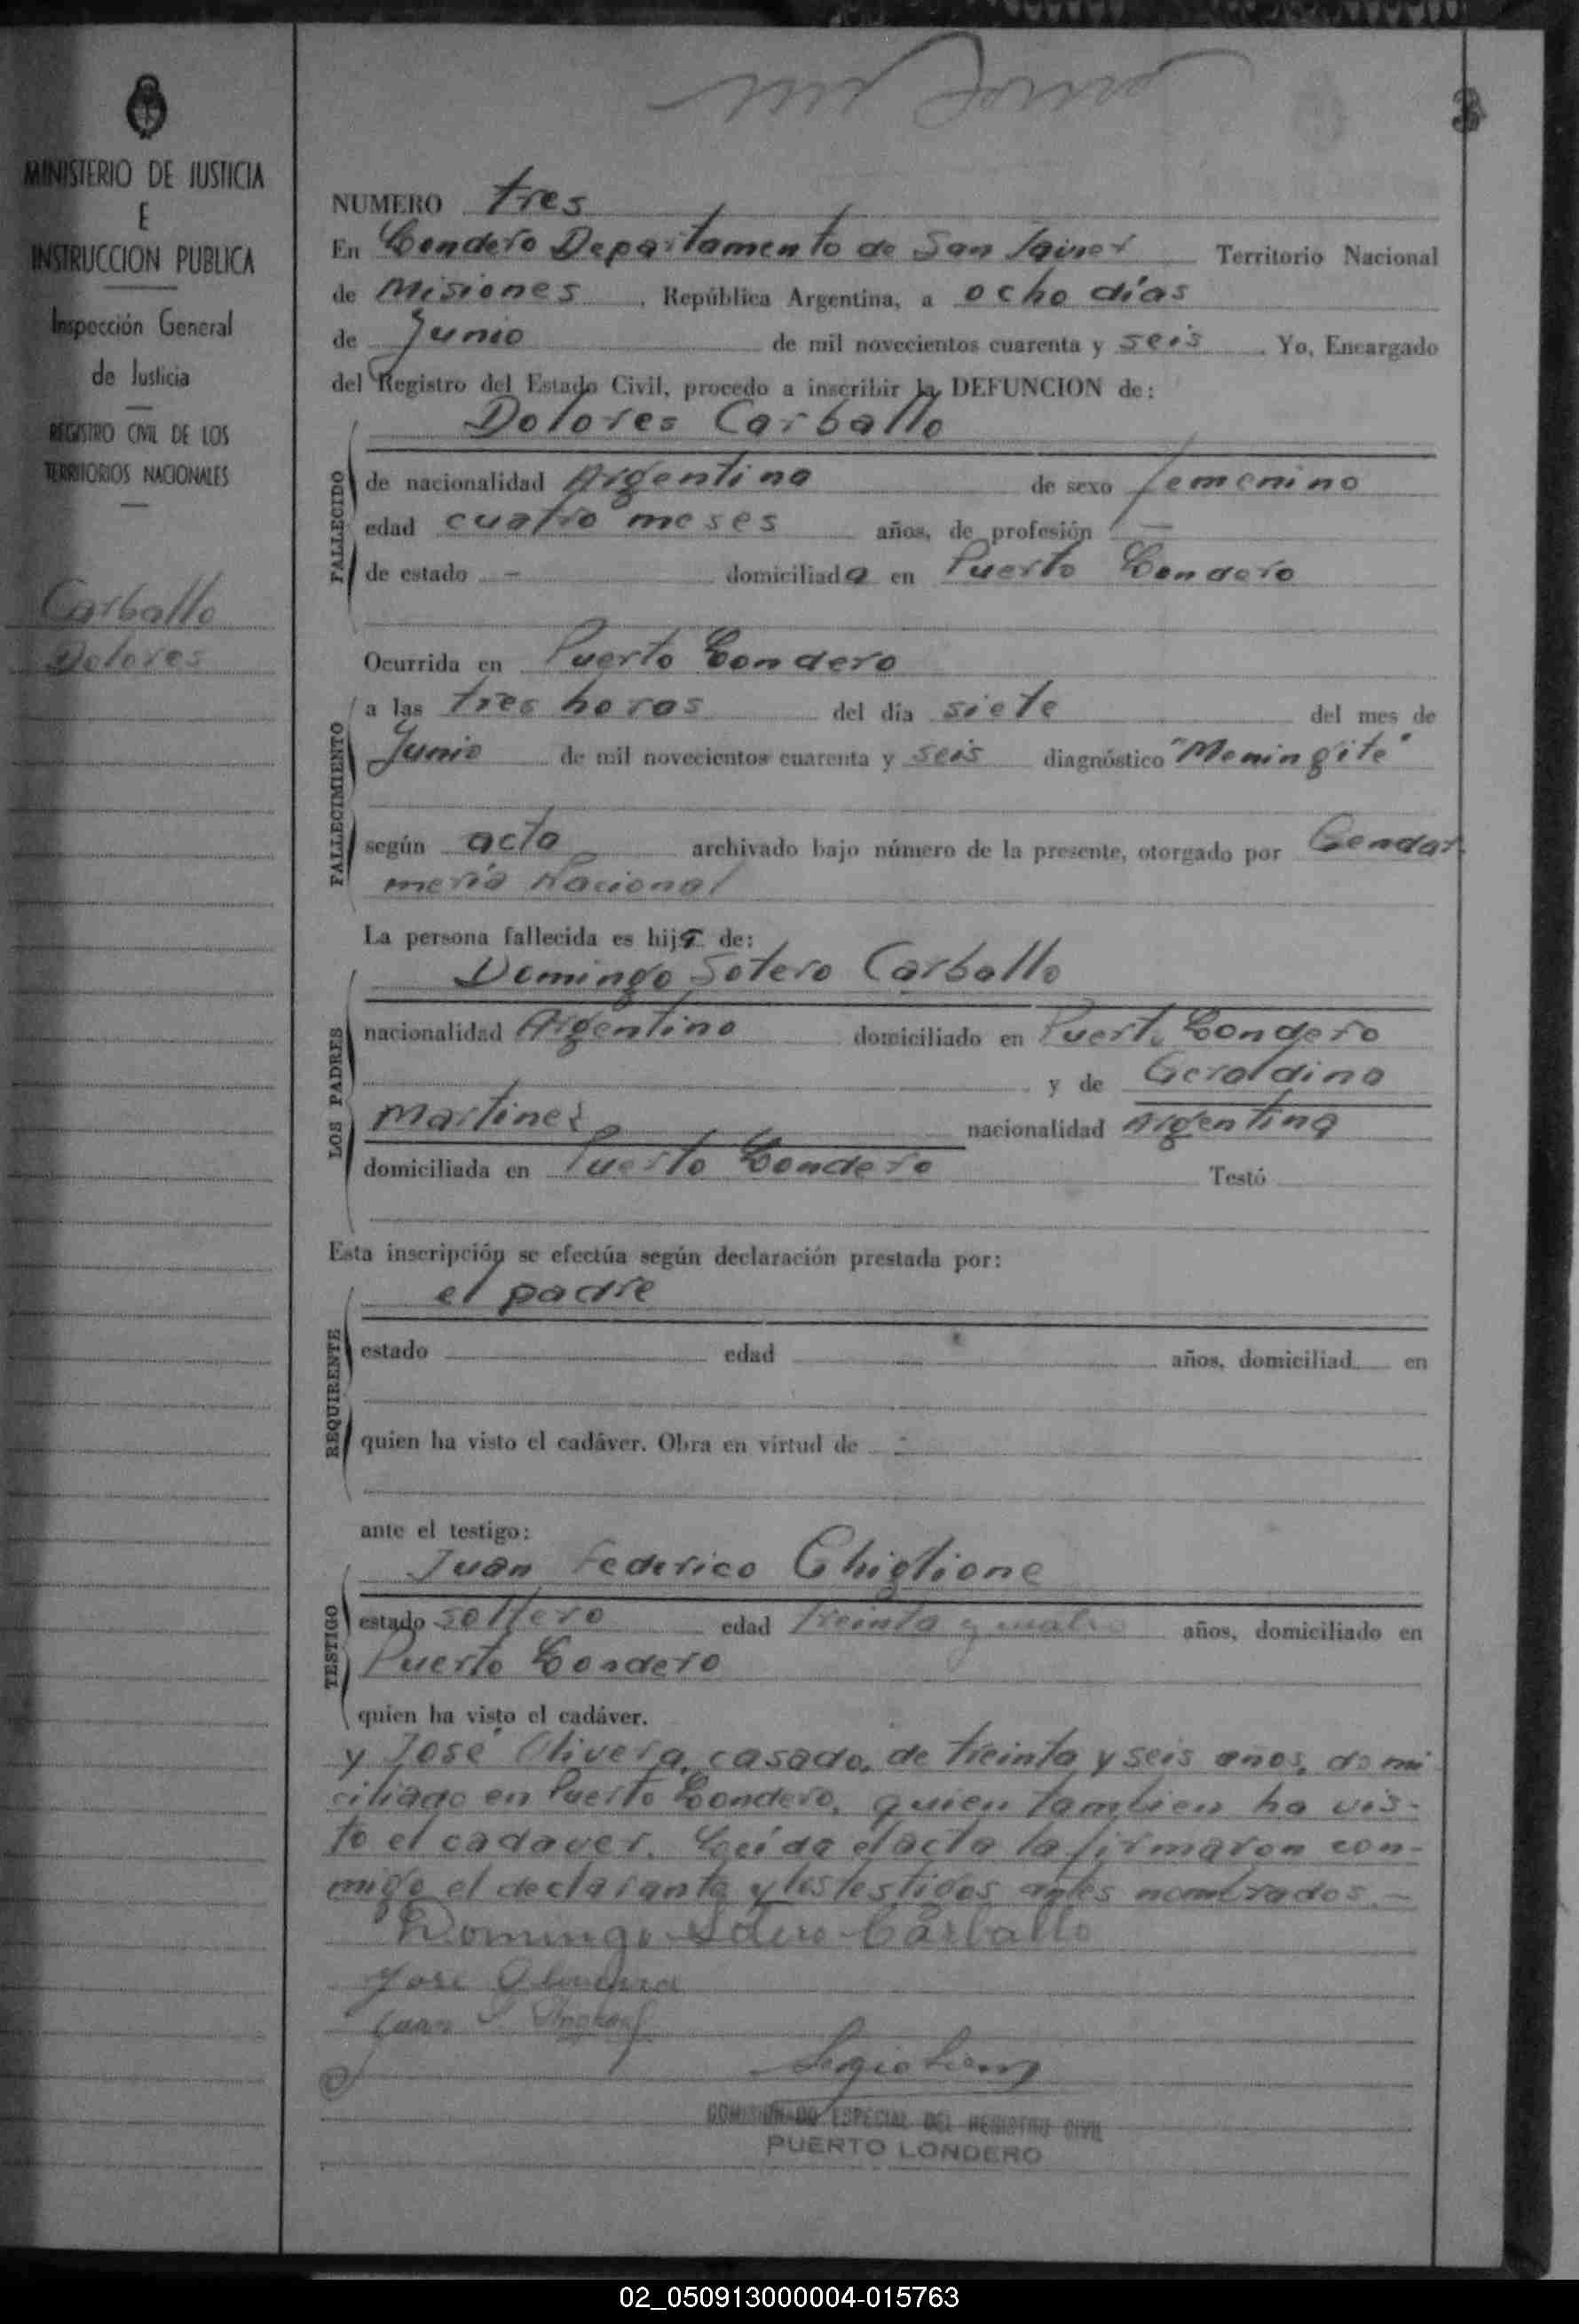 3
MINISTERIO DE JUSTICIA
E
INSTRUCCION PUBLICA
Inspección General
de Justicia
REGISTRO CIVIL DE LOS
TERRITORIOS NACIONALES
Carballo
Dolores
NUMERO tres
En Londero Departamento de San Javier Territorio Nacional
de Misiones, República Argentina, a ocho días
de Junio de mil novecientos cuarenta y seis. Yo, Encargado
del Registro del Estado Civil, procedo a inscribir la DEFUNCION de:
Dolores Carballo
FALLECIDO
de nacionalidad Argentina de sexo femenino
edad cuatro meses años, de profesión —
de estado - domiciliada en Puerto Londero
Ocurrida en Puerto Londero
FALLECIMIENTO
a las tres horas del día siete del mes de
Junio de mil novecientos cuarenta y seis diagnóstico "Meningite"
según acta archivado bajo número de la presente, otorgado por Gendar
mería Nacional
La persona fallecida es hija de:
Domingo Sotero Carballo
LOS PADRES
nacionalidad Argentino domiciliado en Puerto Londero
y de Geraldina
Martinez nacionalidad Argentina
domiciliada en Puerto Londero Testó
Esta inscripción se efectúa según declaración prestada por:
el padre
REQUIRENTE
estado edad años, domiciliad en
quien ha visto el cadáver. Obra en virtud de -
ante el testigo:
Juan Federico Ghiglione
TESTIGO
estado soltero edad treinta y cuatro años, domiciliado en
Puerto Londero
quien ha visto el cadáver.
y José Olivera, casado, de treinta y seis años, domi
ciliado en Puerto Londero, quien tambien ha vis-
to el cadaver. Leída el acta la firmaron con-
migo el declarante y los testigos antes nombrados.-
Domingo Sotero Carballo
José Oliveira
Juan
COMISIONADO ESPECIAL DEL REGISTRO CIVIL
PUERTO LONDERO
02_050913000004-015763